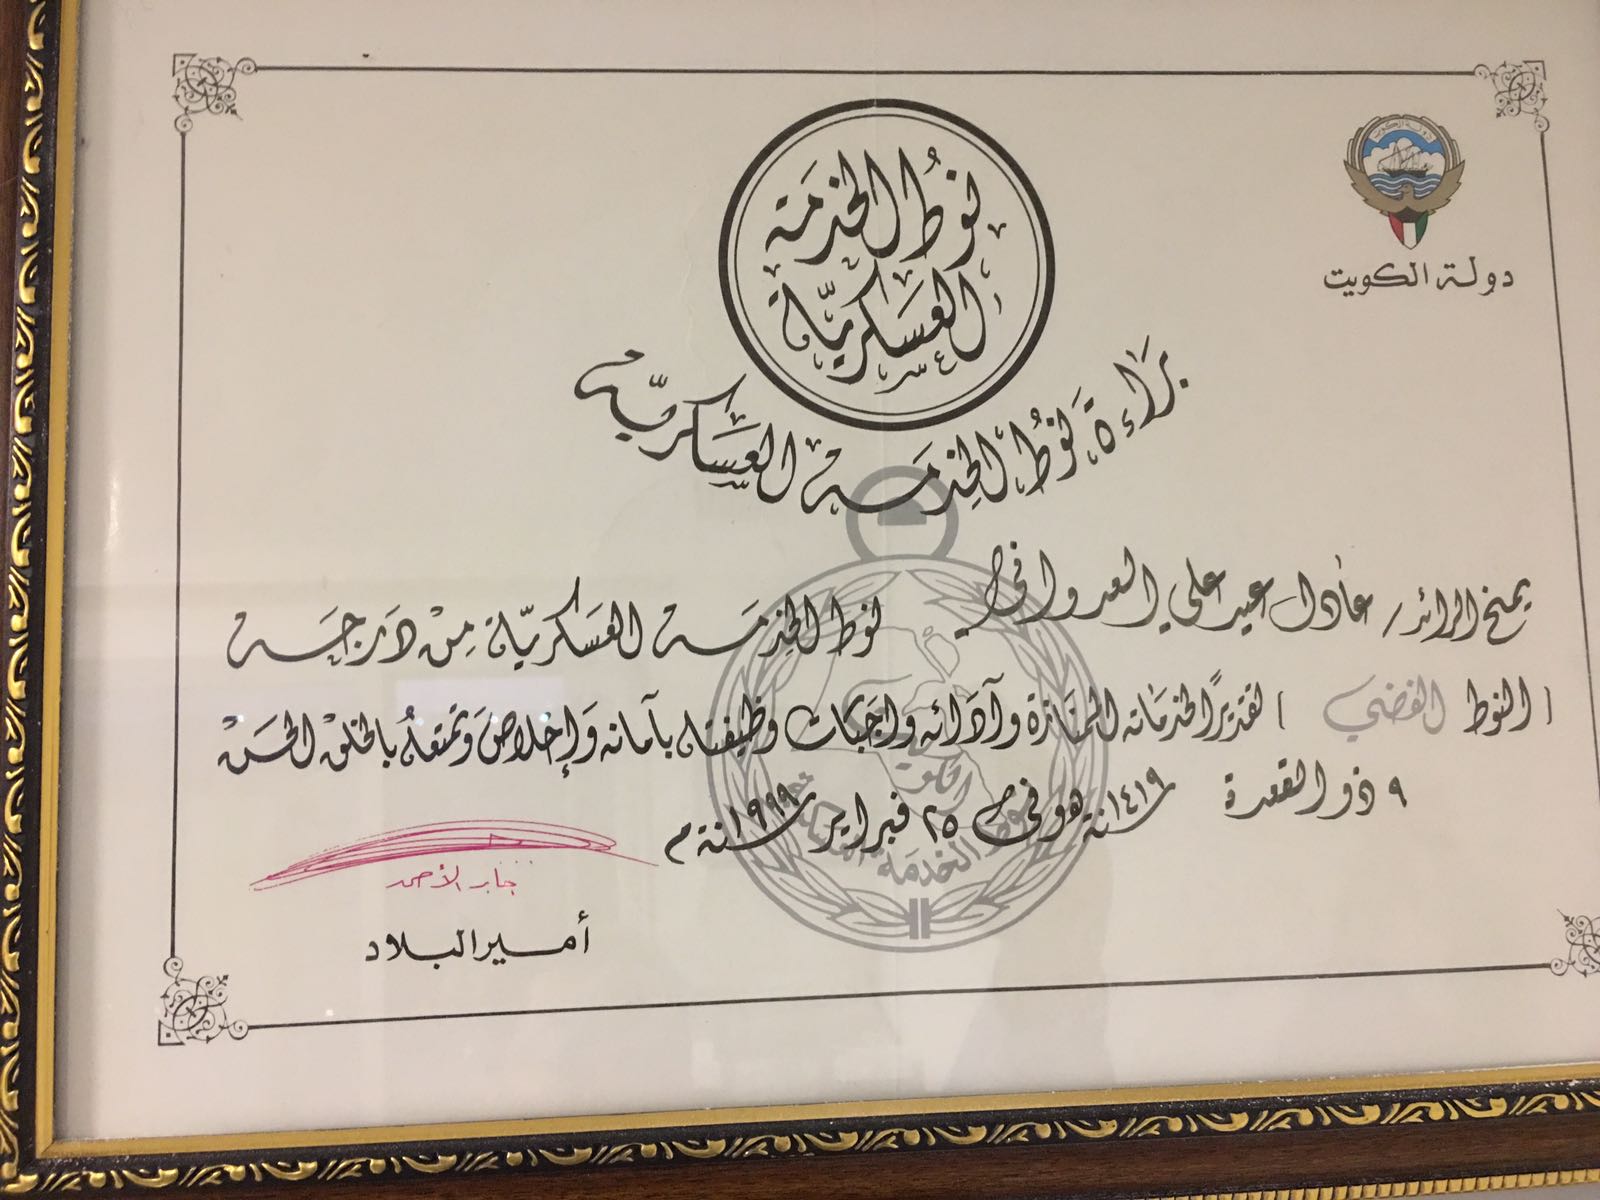 دولة الكويت
دولة الكويت
نوُط الخدمَة
العسَكريّة
بَراءة نوُط الخِدمَة العسَكريّة
يمنح الرائد/ عادل عيد علي العدواني نوط الخِدمَة العسَكريّة مِنْ دَرَجَة
( النوط الفضي ) لقديرًا لخدماته الممتازة وآدائه واجَبات وظيفته بآمانه وَإخلاصَ وتمتعهُ بالخلقْ الحسَنْ
٩ ذو القعدة سَنة ١٤١٩ هـ وفي ٢٥ فبراير سَنة ١٩٩٩ م
جابر الأحمد
أمير البلاد
الكويت
نوط الخدمة